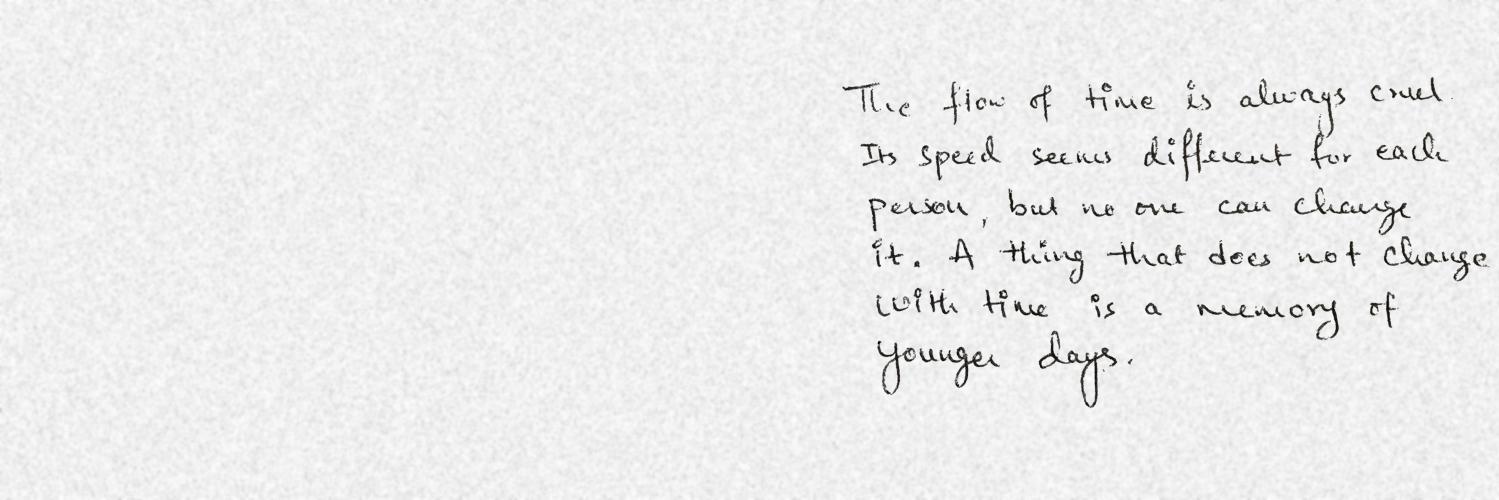 The flow of time is always cruel.
Its speed seems different for each
person, but no one can change
it. A thing that does not change
with time is a memory of
younger days.